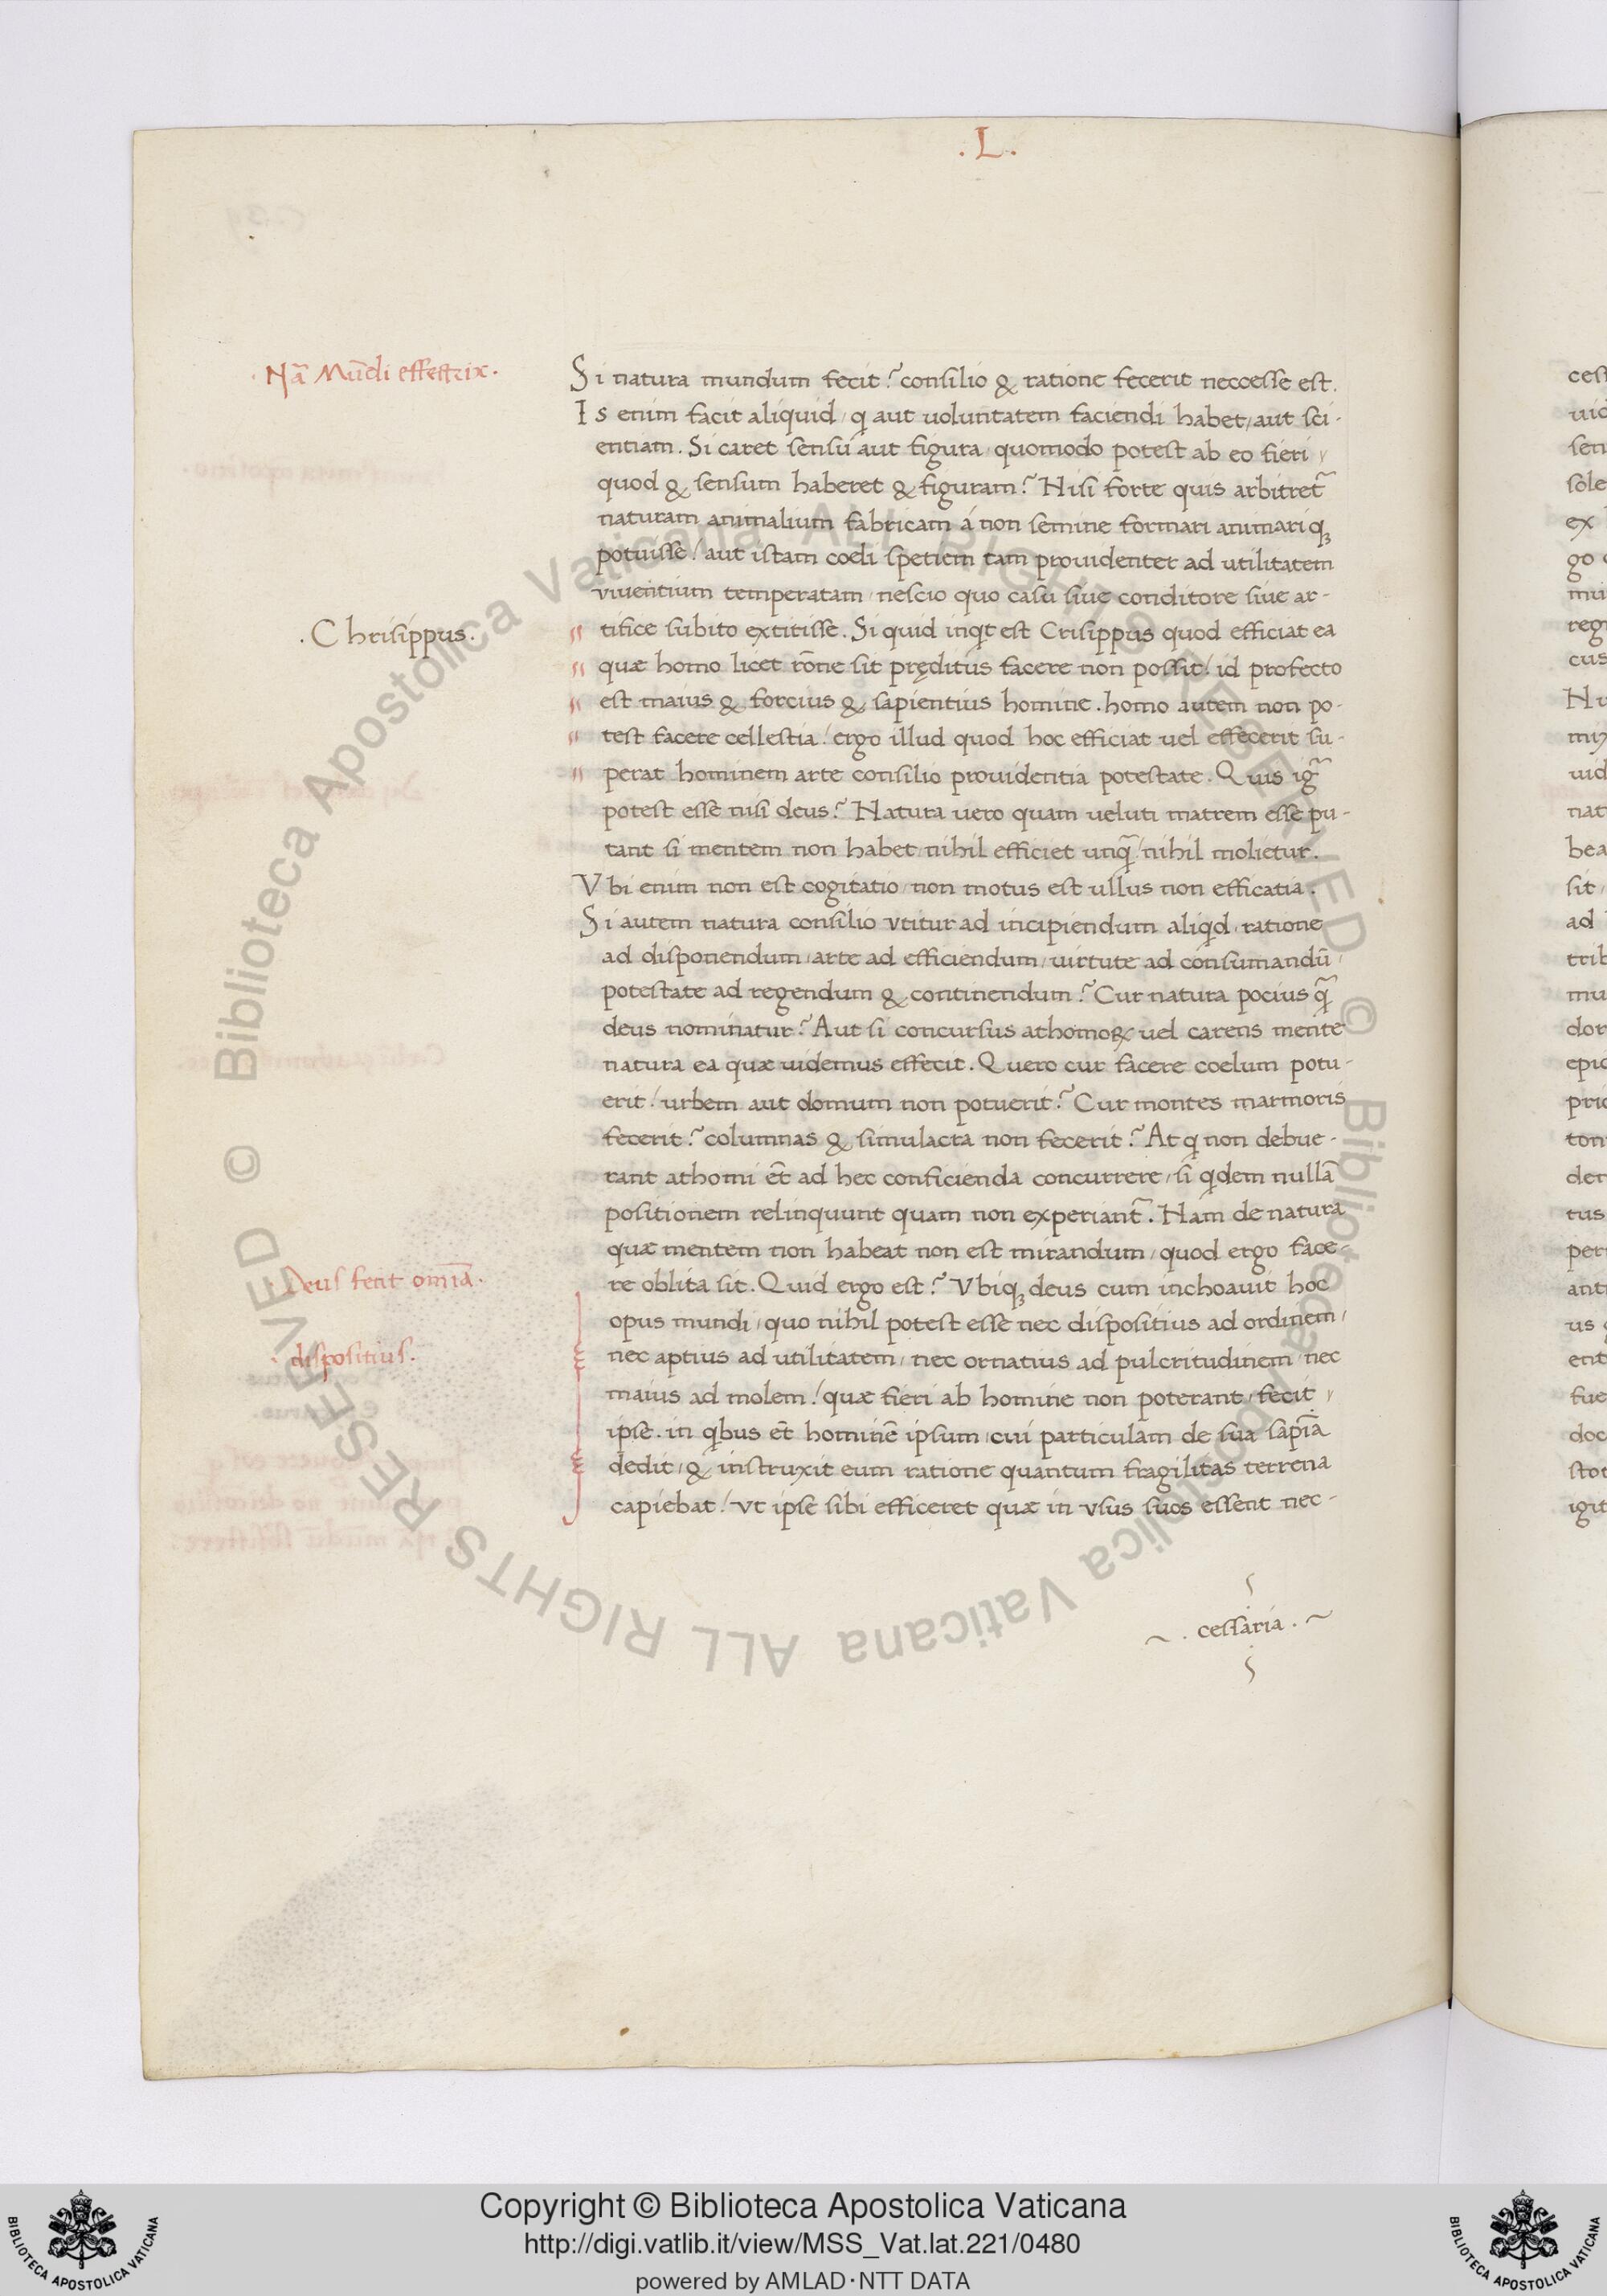 . L .
. Nā Mūdi effectrix .
Si natura mundum fecit? consilio & ratione fecerit neccesse est.
Is enim facit aliquid, q aut uoluntatem faciendi habet, aut sci-
entiam. Si caret sensu aut figura, quomodo potest ab eo fieri,
quod & sensum haberet & figuram? Nisi forte quis arbitret̃
naturam animalium fabricam á non semine formari animariq;
potuisse! aut istam coeli spetiem tam prouidenter ad utilitatem
viuentium temperatam, nescio quo casu siue conditore siue ar-
. Chrisippus .
tifice subito extitisse. Si quid inqt est Crisippus quod efficiat ea
quæ homo licet rōne sit pręditus facere non possit! id profecto
est maius & forcius & sapientius homine. homo autem non po-
test facere cellestia! ergo illud quod hoc efficiat uel effecerit su-
perat hominem arte consilio prouidentia potestate. Quis igr̃
potest esse nisi deus? Natura uero quam ueluti matrem esse pu-
tant si mentem non habet, nihil efficiet unq̃! nihil molietur.
Vbi enim non est cogitatio, non motus est ullus non efficatia.
Si autem natura consilio vtitur ad incipiendum aliqd, ratione
ad disponendum, arte ad efficiendum, uirtute ad consumandū,
potestate ad regendum & continendum? Cur natura pocius q̃
deus nominatur? Aut si concursus athomoꝝ uel carens mente
natura ea quæ uidemus effecit. Quero cur facere coelum potu-
erit! urbem aut domum non potuerit? Cur montes marmoris
fecerit? columnas & simulacra non fecerit? At q non debue-
rant athomi et̃ ad hec conficienda concurrere, si qdem nullā
positionem relinquunt quam non experiant̃. Nam de natura
quæ mentem non habeat non est mirandum, quod ergo face-
. Deus fecit omīa .
re oblita sit. Quid ergo est? Vbiq; deus cum inchoauit hoc
opus mundi, quo nihil potest esse nec dispositius ad ordinem,
. dispositius .
nec aptius ad utilitatem, nec ornatius ad pulcritudinem, nec
maius ad molem! quæ fieri ab homine non poterant, fecit,
ipse. in qbus et̃ hominē ipsum, cui particulam de sua sapīa
dedit, & instruxit eum ratione quantum fragilitas terrena
capiebat! vt ipse sibi efficeret quæ in vsus suos essent nec-
~ . cessaria . ~
Copyright © Biblioteca Apostolica Vaticana
http://digi.vatlib.it/view/MSS_Vat.lat.221/0480
powered by AMLAD·NTT DATA
© Biblioteca Apostolica Vaticana ALL RIGHTS RESERVED © Biblioteca Apostolica Vaticana ALL RIGHTS RESERVED
BIBLIOTECA APOSTOLICA VATICANA
BIBLIOTECA APOSTOLICA VATICANA